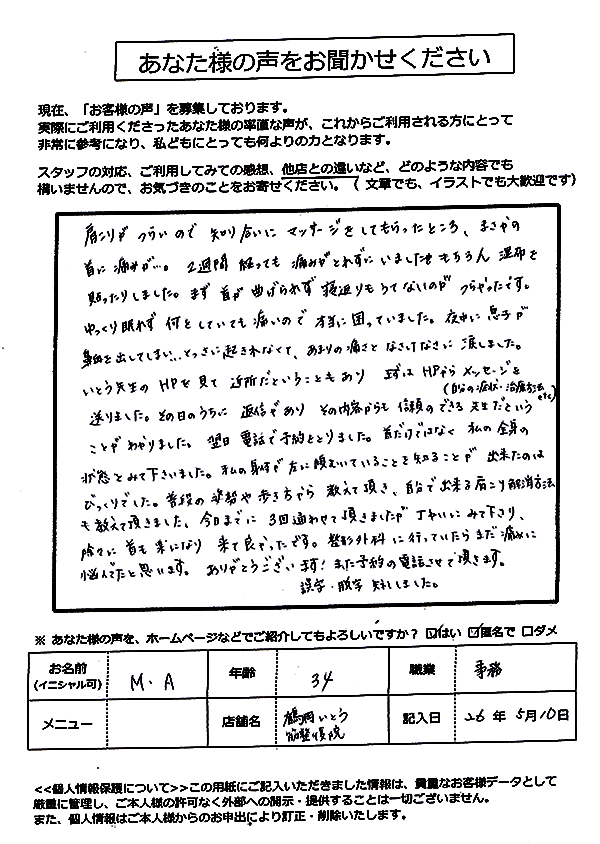 あなた様の声をお聞かせください
現在、「お客様の声」を募集しております。
実際にご利用くださったあなた様の率直な声が、これからご利用される方にとって
非常に参考になり、私どもにとっても何よりの力となります。
スタッフの対応、ご利用してみての感想、他店との違いなど、どのような内容でも
構いませんので、お気づきのことをお寄せください。（ 文章でも、イラストでも大歓迎です）
肩こりが つらいので 知り合いに マッサージを してもらったところ、まさかの
首に痛みが…。2週間 経っても 痛みがとれずに いました もちろん 湿布を
貼ったりしました。まず 首が 曲げられず 寝返りもうてないのが つらかったです。
ゆっくり眠れず 何をしていても 痛いので 本当に困っていました。夜中に 息子が
鼻血を出してしまい…とっさに起きれなくて、あまりの痛さと なさけなさに 涙しました。
いとう先生の HPを見て 近所だということもあり まずは HPからメッセージを
送りました。その日のうちに 返信があり その内容からも 信頼のできる 先生だという
(自分の症状・治療方法etc)
ことが わかりました。翌日 電話で予約をとりました。首だけではなく 私の 全身の
状態をみて下さいました。私の身体が 左に傾むいていることを知ることが 出来たのは
びっくりでした。普段の 姿勢や 歩き方から 教えて頂き、自分で出来る肩こり解消方法
も教えて頂きました、今日までに 3回通わせて頂きましたが 丁ねいに みて下さり、
除々に 首も 楽になり 来て良かったです。整形外科に 行っていたら まだ 痛みに
悩んでたと思います。ありがとうございます！また予約の電話させて頂きます。
誤字・脱字 失礼しました。
※ あなた様の声を、ホームページなどでご紹介してもよろしいですか？ ☑はい ☑匿名で □ダメ
お名前 (イニシャル可) M・A 年齢 34 職業 事務
メニュー 店舗名 鶴岡いとう整体院 記入日 26 年 5月 10日
<<個人情報保護について>>この用紙にご記入いただきました情報は、貴重なお客様データとして
厳重に管理し、ご本人様の許可なく外部への開示・提供することは一切ございません。
また、個人情報はご本人様からのお申出により訂正・削除いたします。